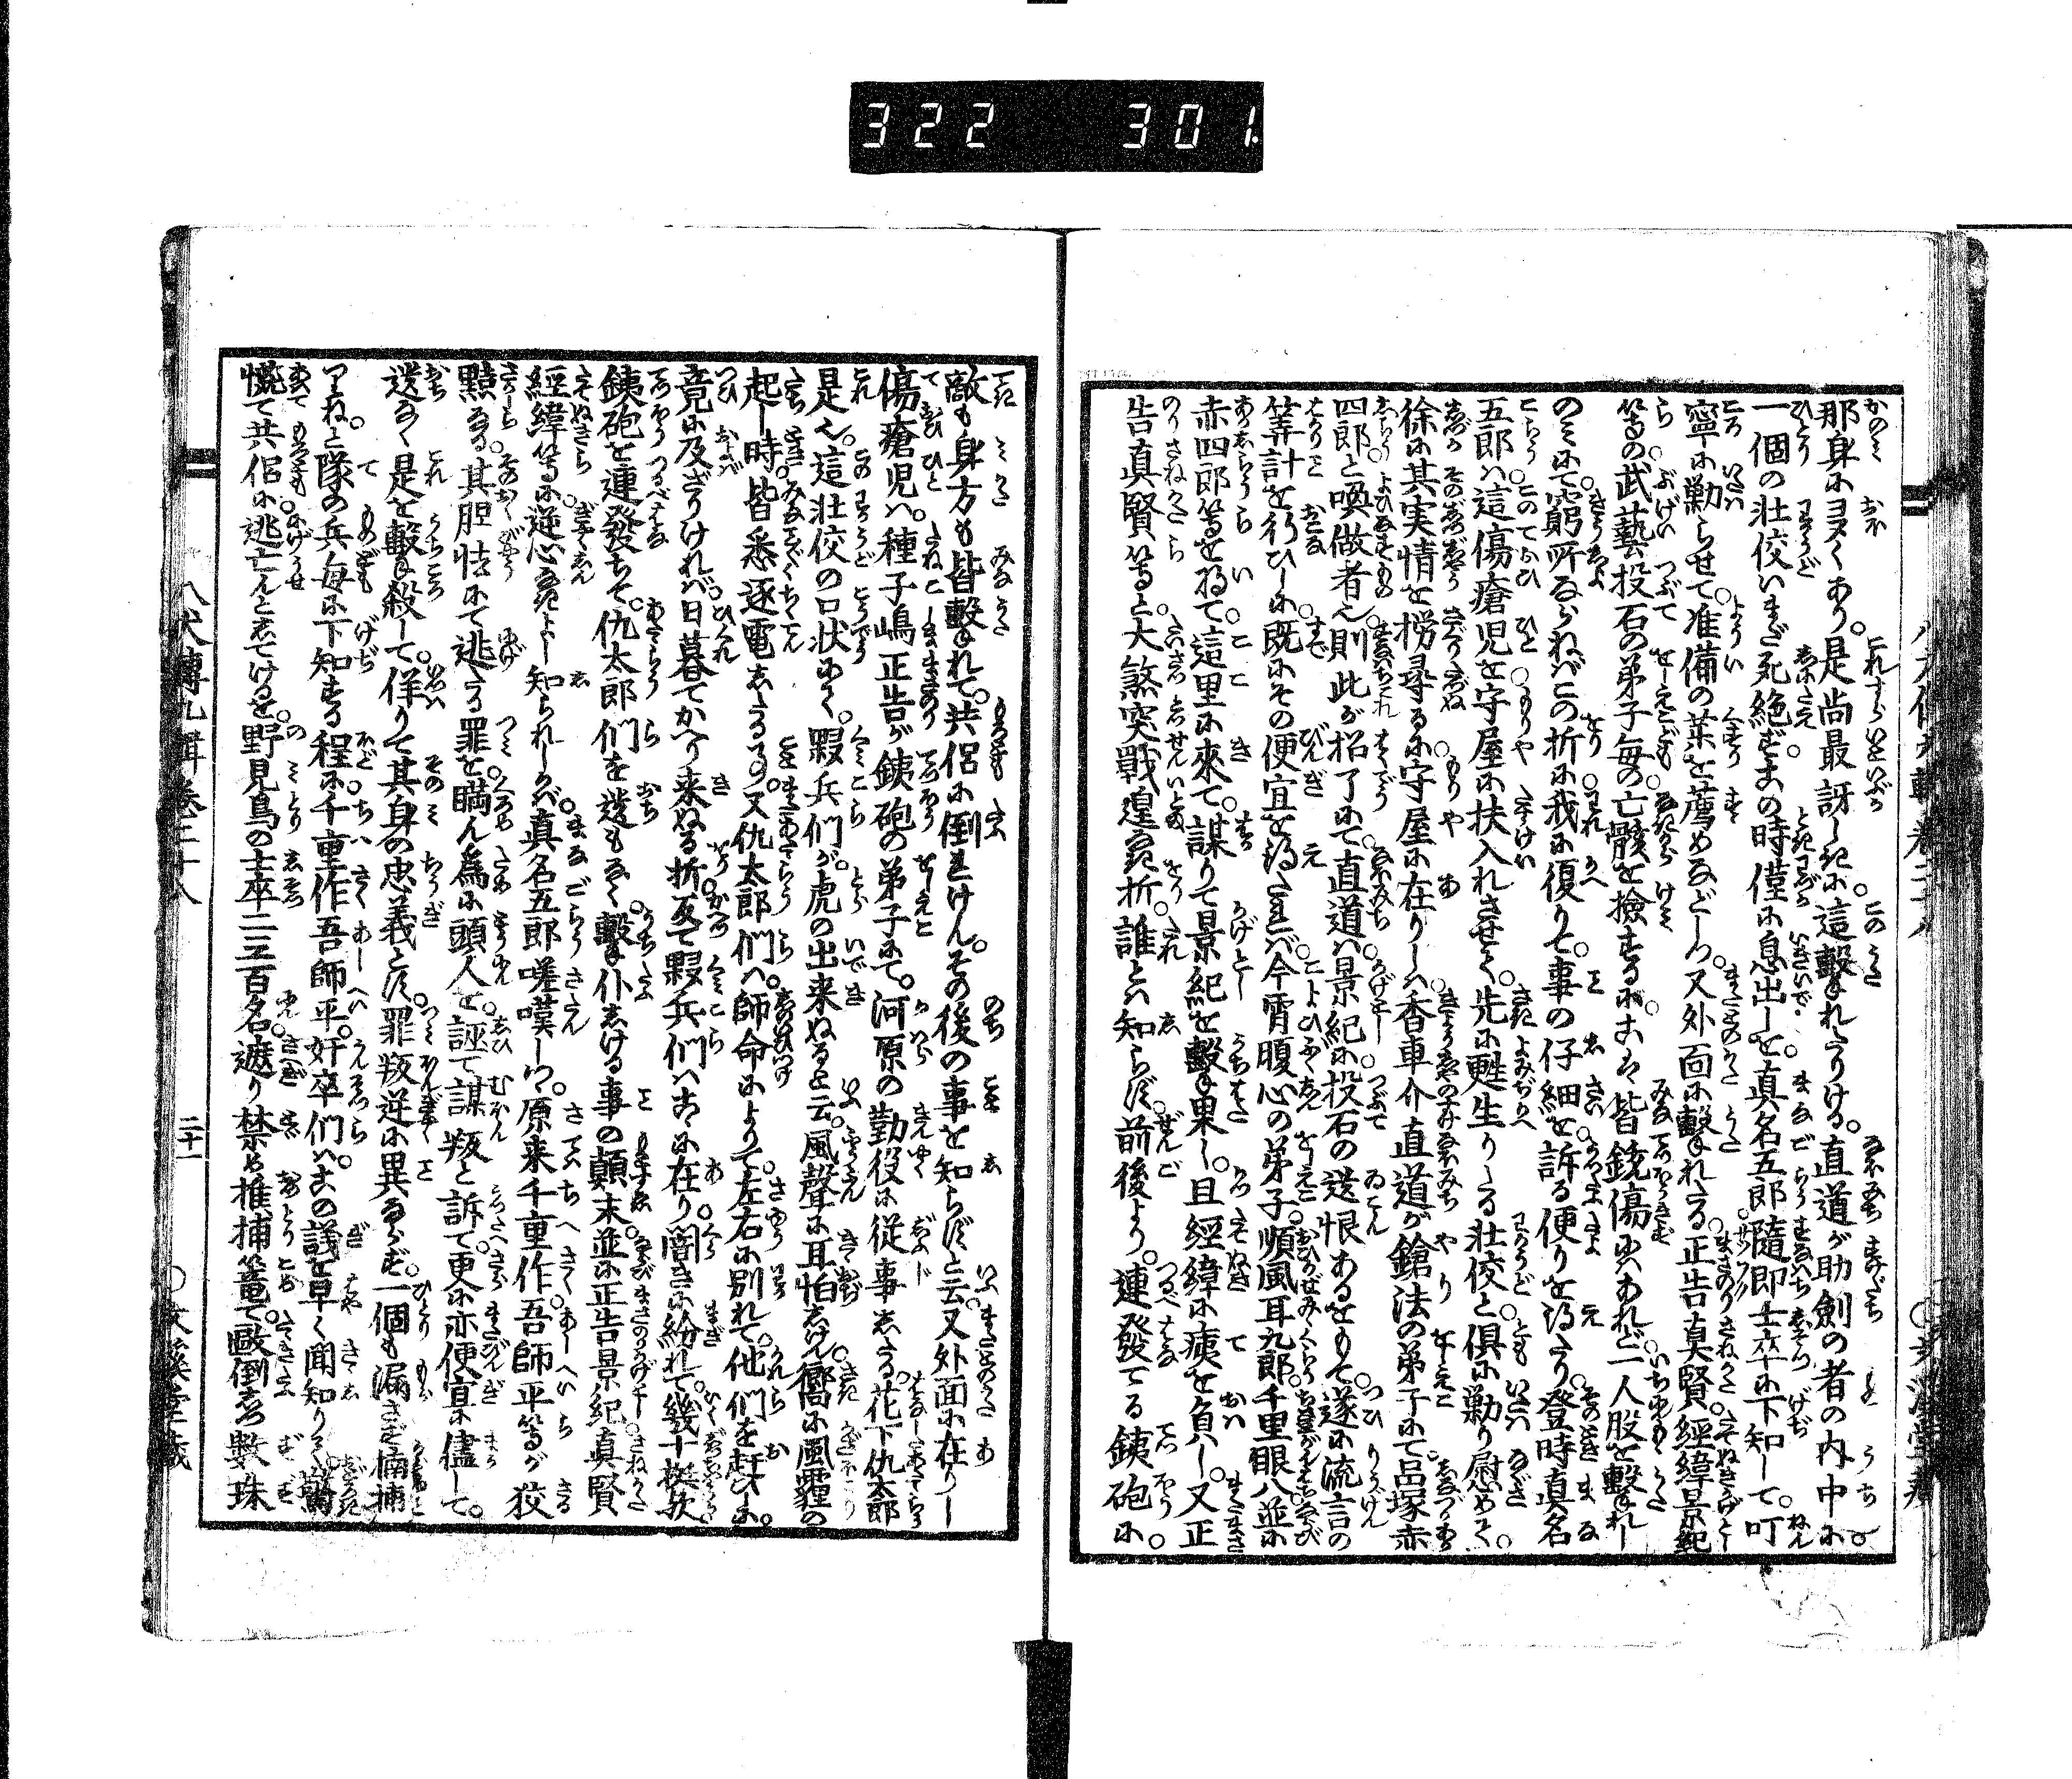 322 301
那身にヨヌくあり。是尚最訝しきに。這撃れたりける。直道が助劍の者の内中に。
一個の壮佼いまだ死絶ず。この時僅に息出しを。真名五郎隨即士卒に下知して。叮
寧に勦らせて。准備の薬を薦めなどしつ。又外面に撃れたる。正告真賢經緯景紀
等の武藝投石の弟子毎の亡骸を撿するに。こは皆銃傷にあれど。一人股を撃れし
のみにて。窮所ならねばこの折に我に復りて。事の仔細を訴る便りを得たり。登時真名
五郎は。這傷瘡児を守屋に扶入れさせて。先に甦生りたる壮佼と。倶に勦り慰めて。
徐に其実情を撈尋るに。守屋に在りしは。香車介直道が鎗法の弟子にて。品塚赤
四郎と喚做者也。則此が招了にて。直道は。景紀に投石の遺恨あるをもて。遂に流言の
筭計を行ひしに。既にその便宜を得たれば。今宵腹心の弟子。順風耳九郎。千里眼八並に
赤四郎等を将て。這里に來て。謀りて景紀を撃果し。且經緯に痍を負し。又正
告真賢等と。大煞突戰遑なき折。誰とは知らず。前後より。連發てる銕砲に。
敵も身方も皆撃れて。共侶に倒れけん。その後の事を知らずと云。又外面に在りし
傷瘡児は。種子嶋正告が銕砲の弟子にて。河原の勤役に従事したる。花下仇太郎
是也。這壮佼の口状にて。夥兵們が。虎の出来ぬると云。風聲に耳怕しけん。嚮に風霾の
起し時。皆悉逐電したる事。又仇太郎們は。師命によりて。左右に別れて。他們を赶ひしに。
竟に及ざりければ。日暮てかへり来ぬる折。反て夥兵們はこゝに在り。闇きに紛れて。幾十挺欤。
銕砲を連發ちて。仇太郎們を遺もなく。撃仆しける事の顛末。並に正告景紀真賢
經緯等に。逆心なきよし知られしかば。真名五郎嗟嘆しつ。原来千重作吾師平等が狡
黠なる。其胆怯にて逃たる罪を瞞ん為に。頭人を。誣て謀叛と訴て。更に亦便宜に儘して。
遺なく是を撃殺して。佯りて其身の忠義とす。罪叛逆に異ならず。一個も漏さず搦捕
りねと。隊の兵毎に下知する程に。千重作吾師平。奸卒們は。この議を早く聞知りて。
慌て共侶に逃亡んとしてけるを。野見鳥の士卒二三百名。遮り禁め推捕篭て。毆倒しつ數珠
八犬傳九輯卷三十八 二十一 〇文溪堂藏